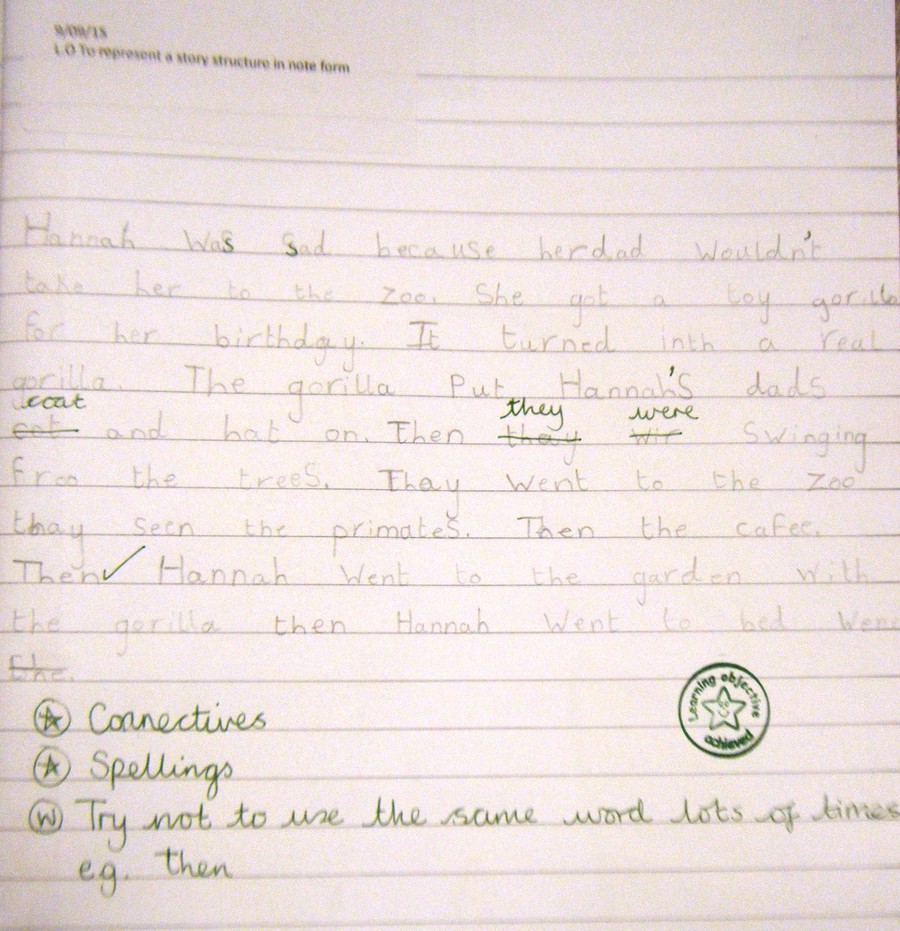 9/09/15
L.O To represent a story structure in note form
Hannah was sad because her dad wouldn't
take her to the zoo. She got a toy gorilla
for her birthday. It turned inth a real
gorilla. The gorilla Put Hannah's dads
coat they were
cot and hat on. Then thay wir Swinging
froo the treeS. Thay went to the zoo
thay seen the primates. Then the cafee.
Then ✓ Hannah Went to the garden with
the gorilla then Hannah Went to bed Wene
the.
Connectives
Learning objective
achieved
Spellings
W Try not to use the same word lots of times
eg. then